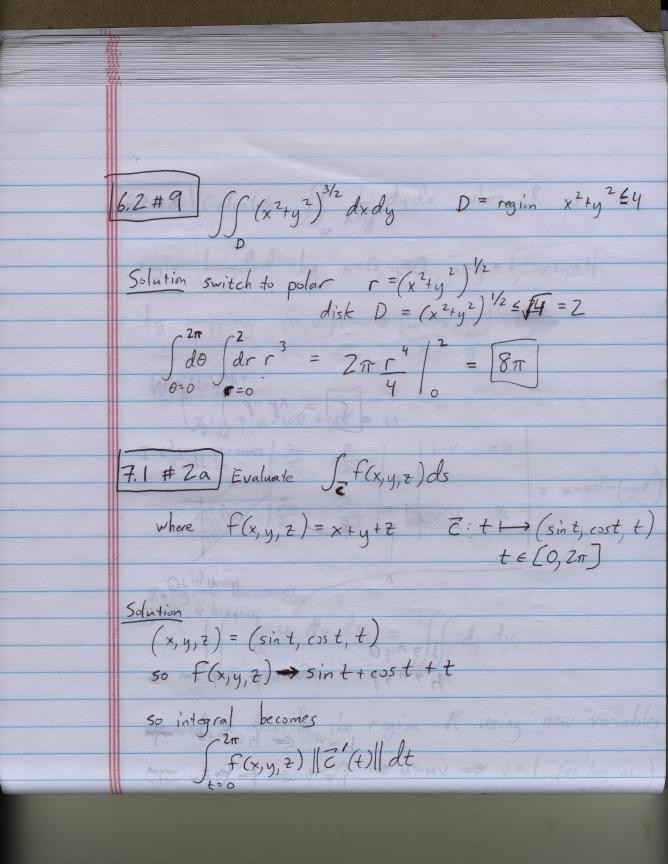 6.2 #9 ∬_D (x²+y²)^{3/2} dxdy D = region x²+y² ≤ 4
Solution switch to polar r = (x²+y²)^{1/2}
disk D = (x²+y²)^{1/2} ≤ √4 = 2
∫_{θ=0}^{2π} dθ ∫_{r=0}^{2} dr r³ = 2π r⁴/4 |_0^2 = 8π
7.1 # 2a Evaluate ∫_{c⃗} f(x,y,z) ds
where f(x,y,z) = x+y+z c⃗ : t ↦ (sin t, cos t, t)
t ∈ [0, 2π]
Solution
(x,y,z) = (sin t, cos t, t)
so f(x,y,z) → sin t + cos t + t
so integral becomes
∫_{t=0}^{2π} f(x,y,z) ||c⃗'(t)|| dt